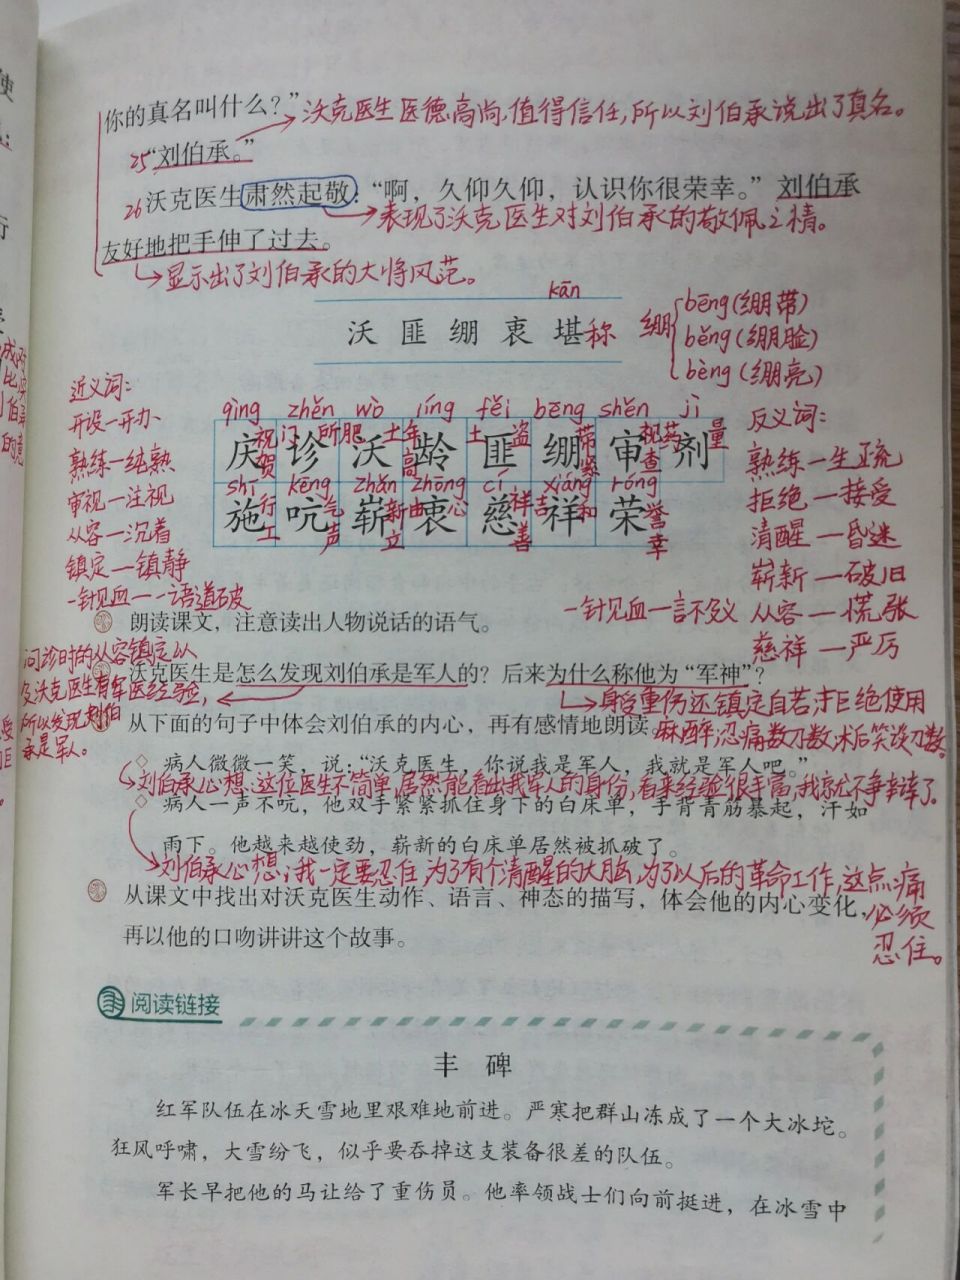 你的真名叫什么？”
沃克医生医德高尚，值得信任，所以刘伯承说出了真名。
25“刘伯承。”
26沃克医生肃然起敬：“啊，久仰久仰，认识你很荣幸。”刘伯承
表现了沃克医生对刘伯承的敬佩之情。
友好地把手伸了过去。
显示出了刘伯承的大将风范。
kān
沃 匪 绷 衷 堪称
绷
bēng(绷带)
běng(绷脸)
bèng(绷亮)
近义词：
开设—开办
熟练—纯熟
审视—注视
从容—沉着
镇定—镇静
一针见血—一语道破
qìng zhěn wò líng fěi bēng shěn jì
庆 诊 沃 龄 匪 绷 审 剂
祝贺 门 所 肥 土 年高 土 盗 带紧 视查 药 量
shī kēng zhǎn zhōng cí xiáng róng
施 吭 崭 衷 慈 祥 荣
行工 气声 新立 曲 心 祥善 吉 和 誉幸
反义词：
熟练—生疏
拒绝—接受
清醒—昏迷
崭新—破旧
从容—慌张
慈祥—严厉
一针见血—言不及义
朗读课文，注意读出人物说话的语气。
沃克医生是怎么发现刘伯承是军人的？后来为什么称他为“军神”？
问诊时的从容镇定以
及沃克医生有军医经验，
所以发现刘伯
承是军人。
身受重伤还镇定自若，拒绝使用
麻醉，忍痛数刀数，术后笑谈刀数。
从下面的句子中体会刘伯承的内心，再有感情地朗读。
◇ 病人微微一笑，说：“沃克医生，你说我是军人，我就是军人吧。”
刘伯承心想：这位医生不简单，居然能看出我军人的身份，看来经验很丰富，我就不争辩了。
◇ 病人一声不吭，他双手紧紧抓住身下的白床单，手背青筋暴起，汗如
雨下。他越来越使劲，崭新的白床单居然被抓破了。
刘伯承心想：我一定要忍住，为了有个清醒的大脑，为了以后的革命工作，这点痛
必须
忍住。
从课文中找出对沃克医生动作、语言、神态的描写，体会他的内心变化，
再以他的口吻讲讲这个故事。
阅读链接
丰 碑
红军队伍在冰天雪地里艰难地前进。严寒把群山冻成了一个大冰坨。
狂风呼啸，大雪纷飞，似乎要吞掉这支装备很差的队伍。
军长早把他的马让给了重伤员。他率领战士们向前挺进，在冰雪中